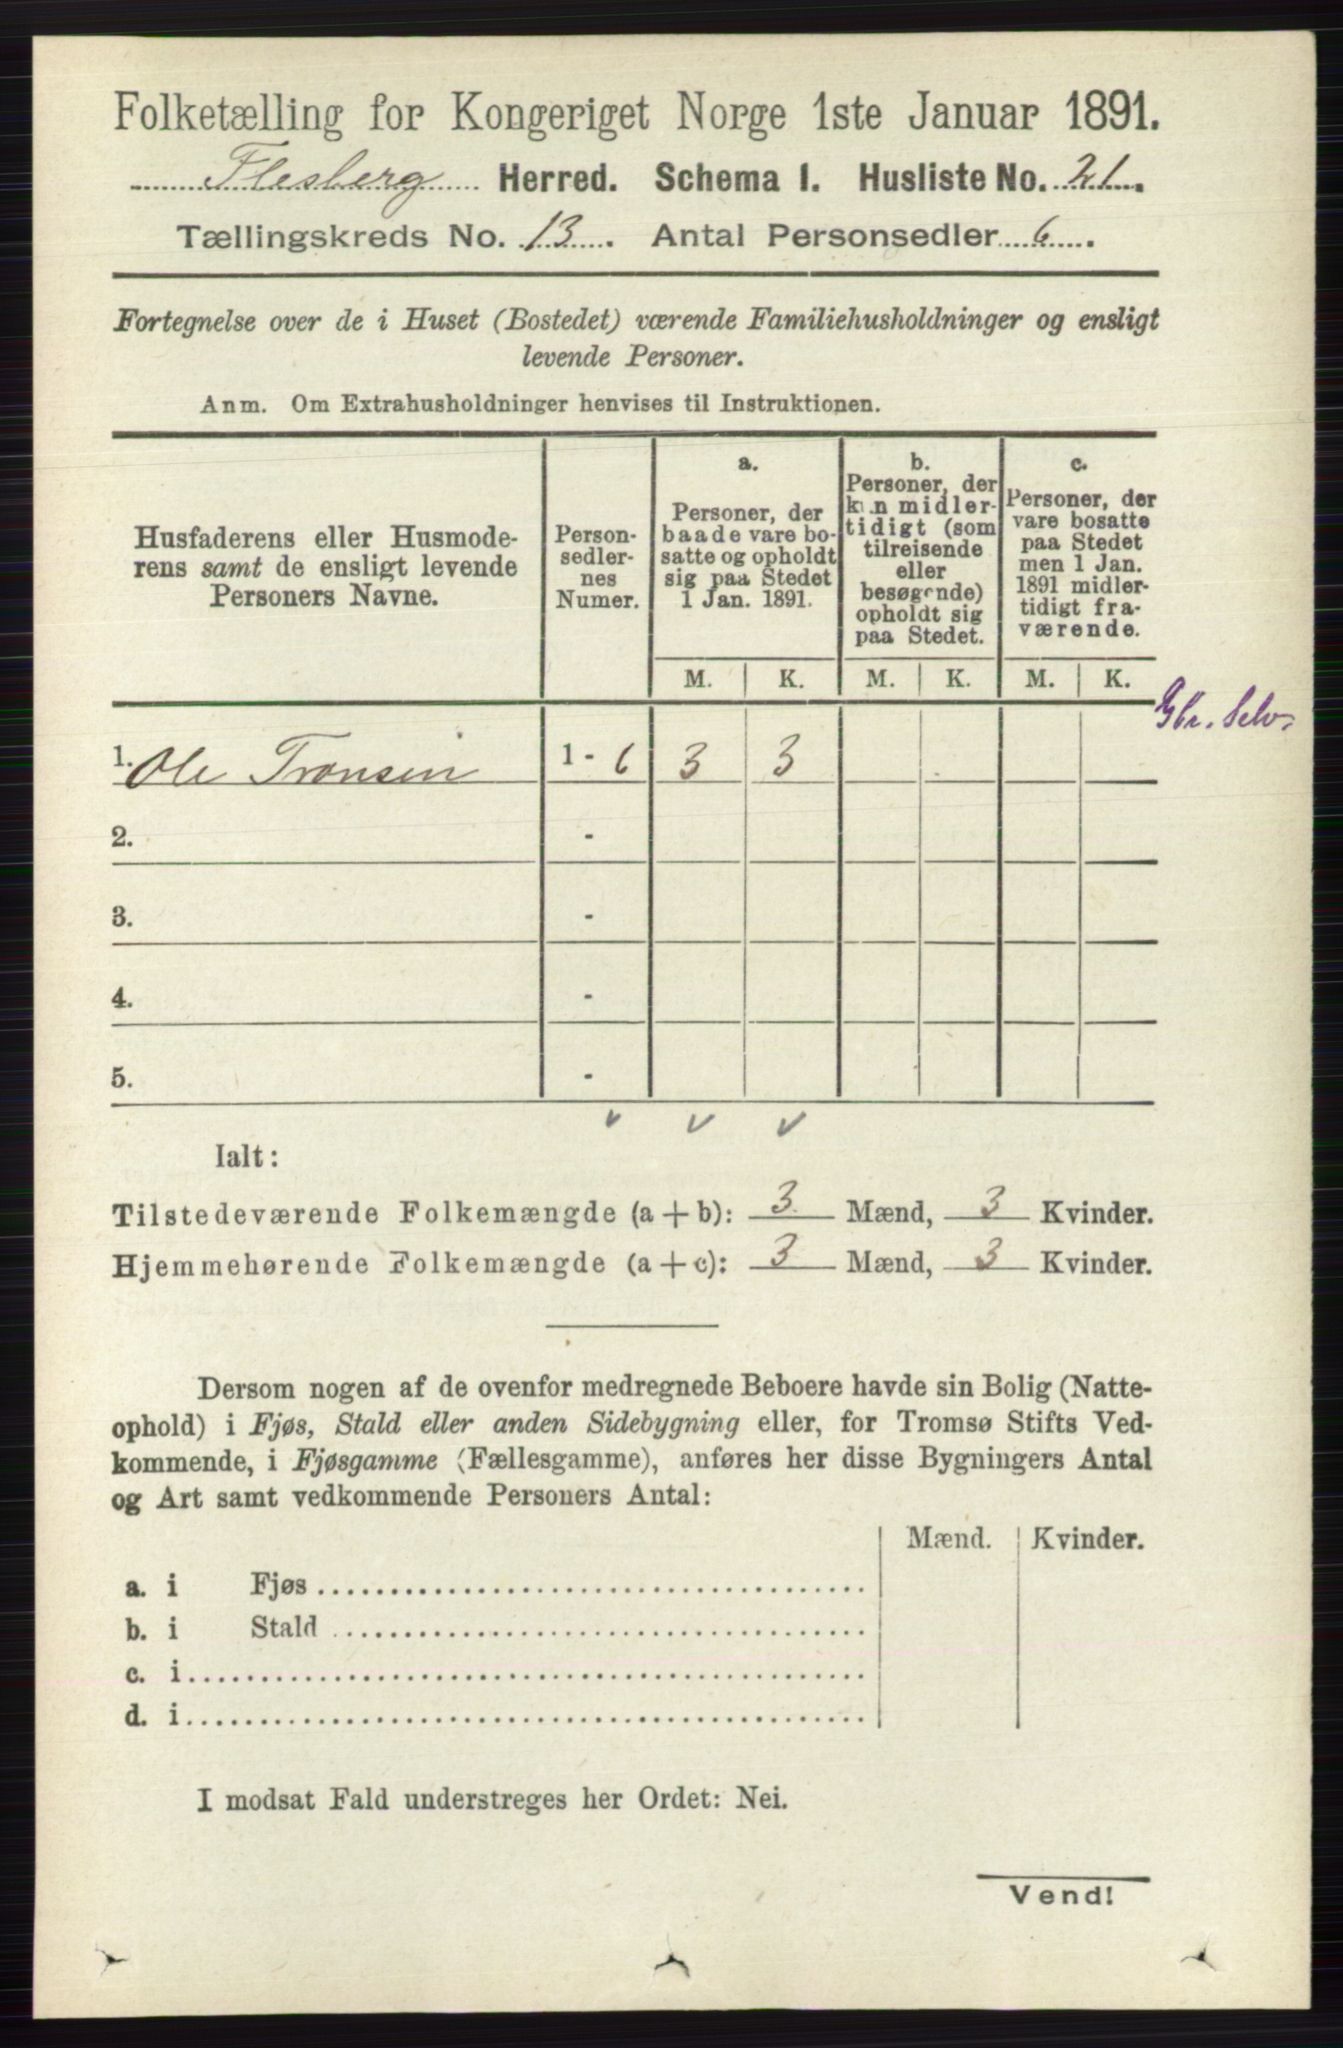 Folketælling for Kongeriget Norge 1ste Januar 1891.
Flesberg Herred. Schema 1. Husliste No. 21.
Tællingskreds No. 13. Antal Personsedler 6.
Fortegnelse over de i Huset (Bostedet) værende Familiehusholdninger og ensligt
levende Personer.
Anm. Om Extrahusholdninger henvises til Instruktionen.
Husfaderens eller Husmode-
rens samt de ensligt levende
Personers Navne.
Person-
sedler-
nes
Numer.
a.
Personer, der
baade vare bo-
satte og opholdt
sig paa Stedet
1 Jan. 1891.
b.
Personer, der
kun midler-
tidigt (som
tilreisende
eller
besøgende)
opholdt sig
paa Stedet.
c.
Personer, der
vare bosatte
paa Stedet
men 1 Jan.
1891 midler-
tidigt fra-
værende.
M. K. M. K. M. K.
Gbr. Selv.
1. Ole Tronsen 1 - 6 3 3
2. -
3. -
4. -
5. -
Ialt:
Tilstedeværende Folkemængde (a + b): 3 Mænd, 3 Kvinder.
Hjemmehørende Folkemængde (a + c): 3 Mænd, 3 Kvinder.
Dersom nogen af de ovenfor medregnede Beboere havde sin Bolig (Natte-
ophold) i Fjøs, Stald eller anden Sidebygning eller, for Tromsø Stifts Ved-
kommende, i Fjøsgamme (Fællesgamme), anføres her disse Bygningers Antal
og Art samt vedkommende Personers Antal:
Mænd. Kvinder.
a. i Fjøs
b. i Stald
c. i
d. i
I modsat Fald understreges her Ordet: Nei.
Vend!